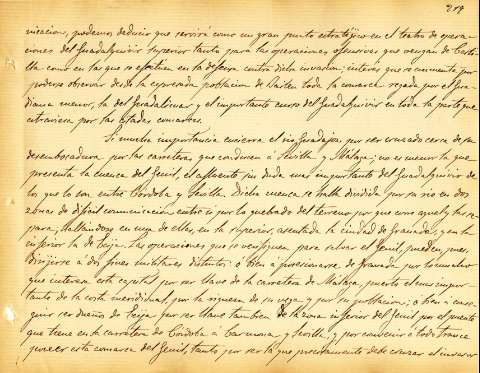 nicacion, podemos deducir que servirá como un gran punto estratégico en el teatro de opera-
ciones del Guadalquivir superior tanto para las operaciones ofensivas que vengan de Casti-
lla como en las que se efectúen en la defensa contra dicha invasion; interes que se aumenta por
poderse observar desde la expresada poblacion de Bailen toda la comarca regada por el Gua-
diana menor, la del Guadalimar y el importante curso del Guadalquivir en toda la parte que
atraviesa por las citadas comarcas.
Si mucha importancia encierra el rio Guadajoz por ser cruzado cerca de su
desembocadura por las carreteras que conducen á Sevilla y Málaga; no es menor la que
presenta la cuenca del Genil, el afluente sin duda mas importante del Guadalquivir de
los que lo son entre Córdoba y Sevilla. Dicha cuenca se halla dividida por su rio en dos
zonas de dificil comunicacion entre si por lo quebrado del terreno por que corre aquel y las se-
para, hallándose en una de ellas, en la superior, asentada la ciudad de Granada; y en la
inferior la de Ecija. Las operaciones que se verifiquen para salvar el Genil, pueden, pues,
dirijirse á dos fines militares distintos: ó bien á posesionarse de Granada por lo mucho
que interesa esta capital por ser llave de la carretera de Málaga, puerto el mas impor-
tante de la costa meridional, por la riqueza de su vega y por su poblacion; ó bien á conse-
guir ser dueños de Ecija por ser llave tambien de la zona inferior del Genil por el puente
que tiene en la carretera de Córdoba á Carmona y Sevilla; y por convenir á todo trance
poseer esta comarca del Genil, tanto por ser la que precisamente debe cruzar el invasor